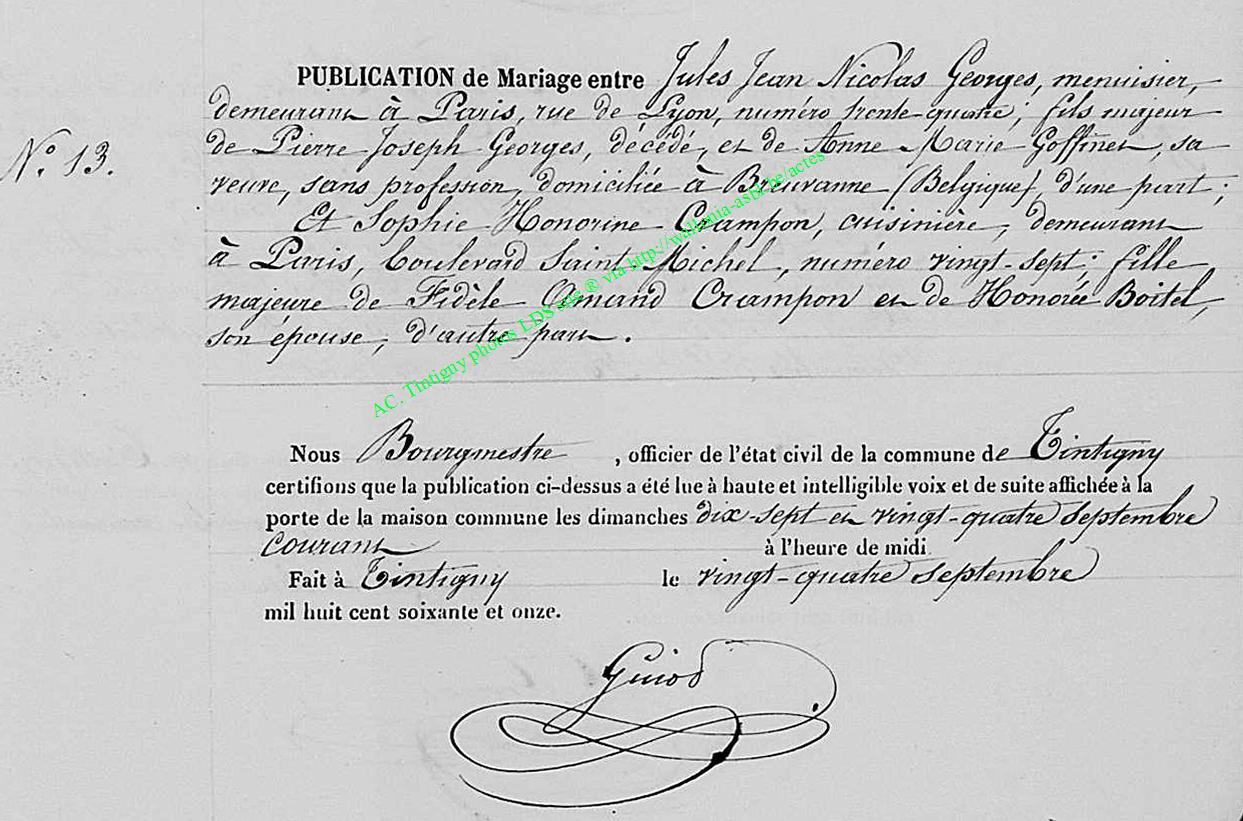 PUBLICATION de Mariage entre Jules Jean Nicolas Georges, menuisier,
demeurant à Paris, rue de Lyon, numéro trente-quatre; fils majeur
N.° 13.
de Pierre Joseph Georges, décédé, et de Anne Marie Goffinet, sa
veuve, sans profession, domiciliée à Breuvanne (Belgique), d'une part;
Et Sophie Honorine Crampon, cuisinière, demeurant
à Paris, boulevard Saint Michel, numéro vingt-sept; fille
majeure de Fidèle Omand Crampon et de Honorée Boitel,
son épouse, d'autre part.
AC. Tintigny photos LDS arie ® via http://wallonia-asbl.be/actes
Nous Bourgmestre , officier de l'état civil de la commune de Tintigny
certifions que la publication ci-dessus a été lue à haute et intelligible voix et de suite affichée à la
porte de la maison commune les dimanches dix-sept et vingt-quatre septembre
courant à l'heure de midi
Fait à Tintigny le vingt-quatre septembre
mil huit cent soixante et onze.
Guiod